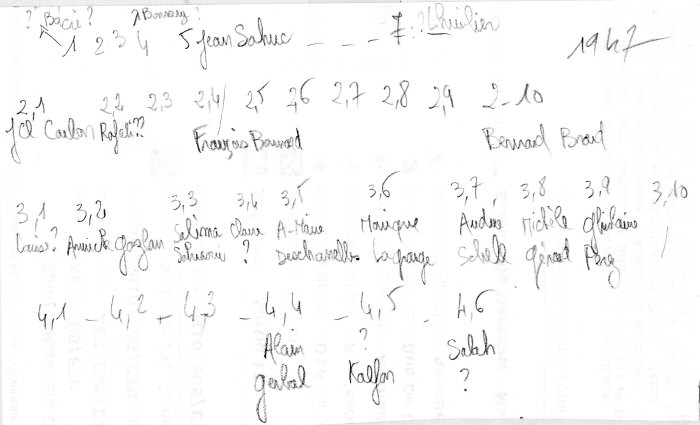 ? Bacié? ? Bonnary?
1 2 3 4 5 Jean Sahuc - - - 7: ? Lhuilier
1947
2,1 2,2 2,3 2,4/ 2,5 2,6 2,7 2,8 2,9 2-10
Jcl Rafati?? François Bonnard Bernard Braud
3,1 3,2 3,3 3,4 3,5 3,6 3,7 3,8 3,9 3,10
Louise? Annick gozlan Claire A-Marie Monique Andrée Michèle Ghislaine
? Deschanelles Lagrange Schell gérard Pérez
4,1 - 4,2 - 4,3 - 4,4 - 4,5 - 4,6
Alain ? Salah
gerbal Kalfon ?